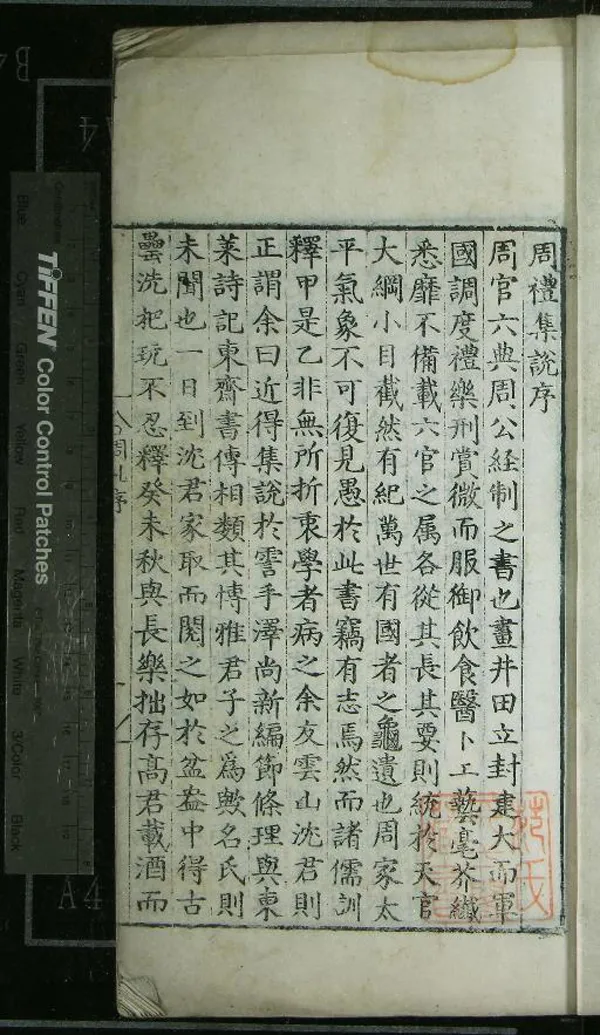 周禮集說序
周官六典周公經制之書也畫井田立封建大而軍
國調度禮樂刑賞微而服御飲食醫卜工藝毫芥纖
悉靡不備載六官之属各從其長其要則統於天官
大綱小目截然有紀萬世有國者之龜遺也周家太
平氣象不可復見愚於此書竊有志焉然而諸儒訓
釋甲是乙非無所折衷學者病之余友雲山沈君則
正謂余曰近得集說於霅手澤尚新編節條理與東
莱詩記東齋書傳相類其博雅君子之為歟名氏則
未聞也一日到沈君家取而閱之如於盆盎中得古
罍洗把玩不忍釋癸未秋與長樂拙存高君載酒而
TIFFEN Color Control Patches
Blue Cyan Green Yellow Red Magenta White 3/Color Black
A4